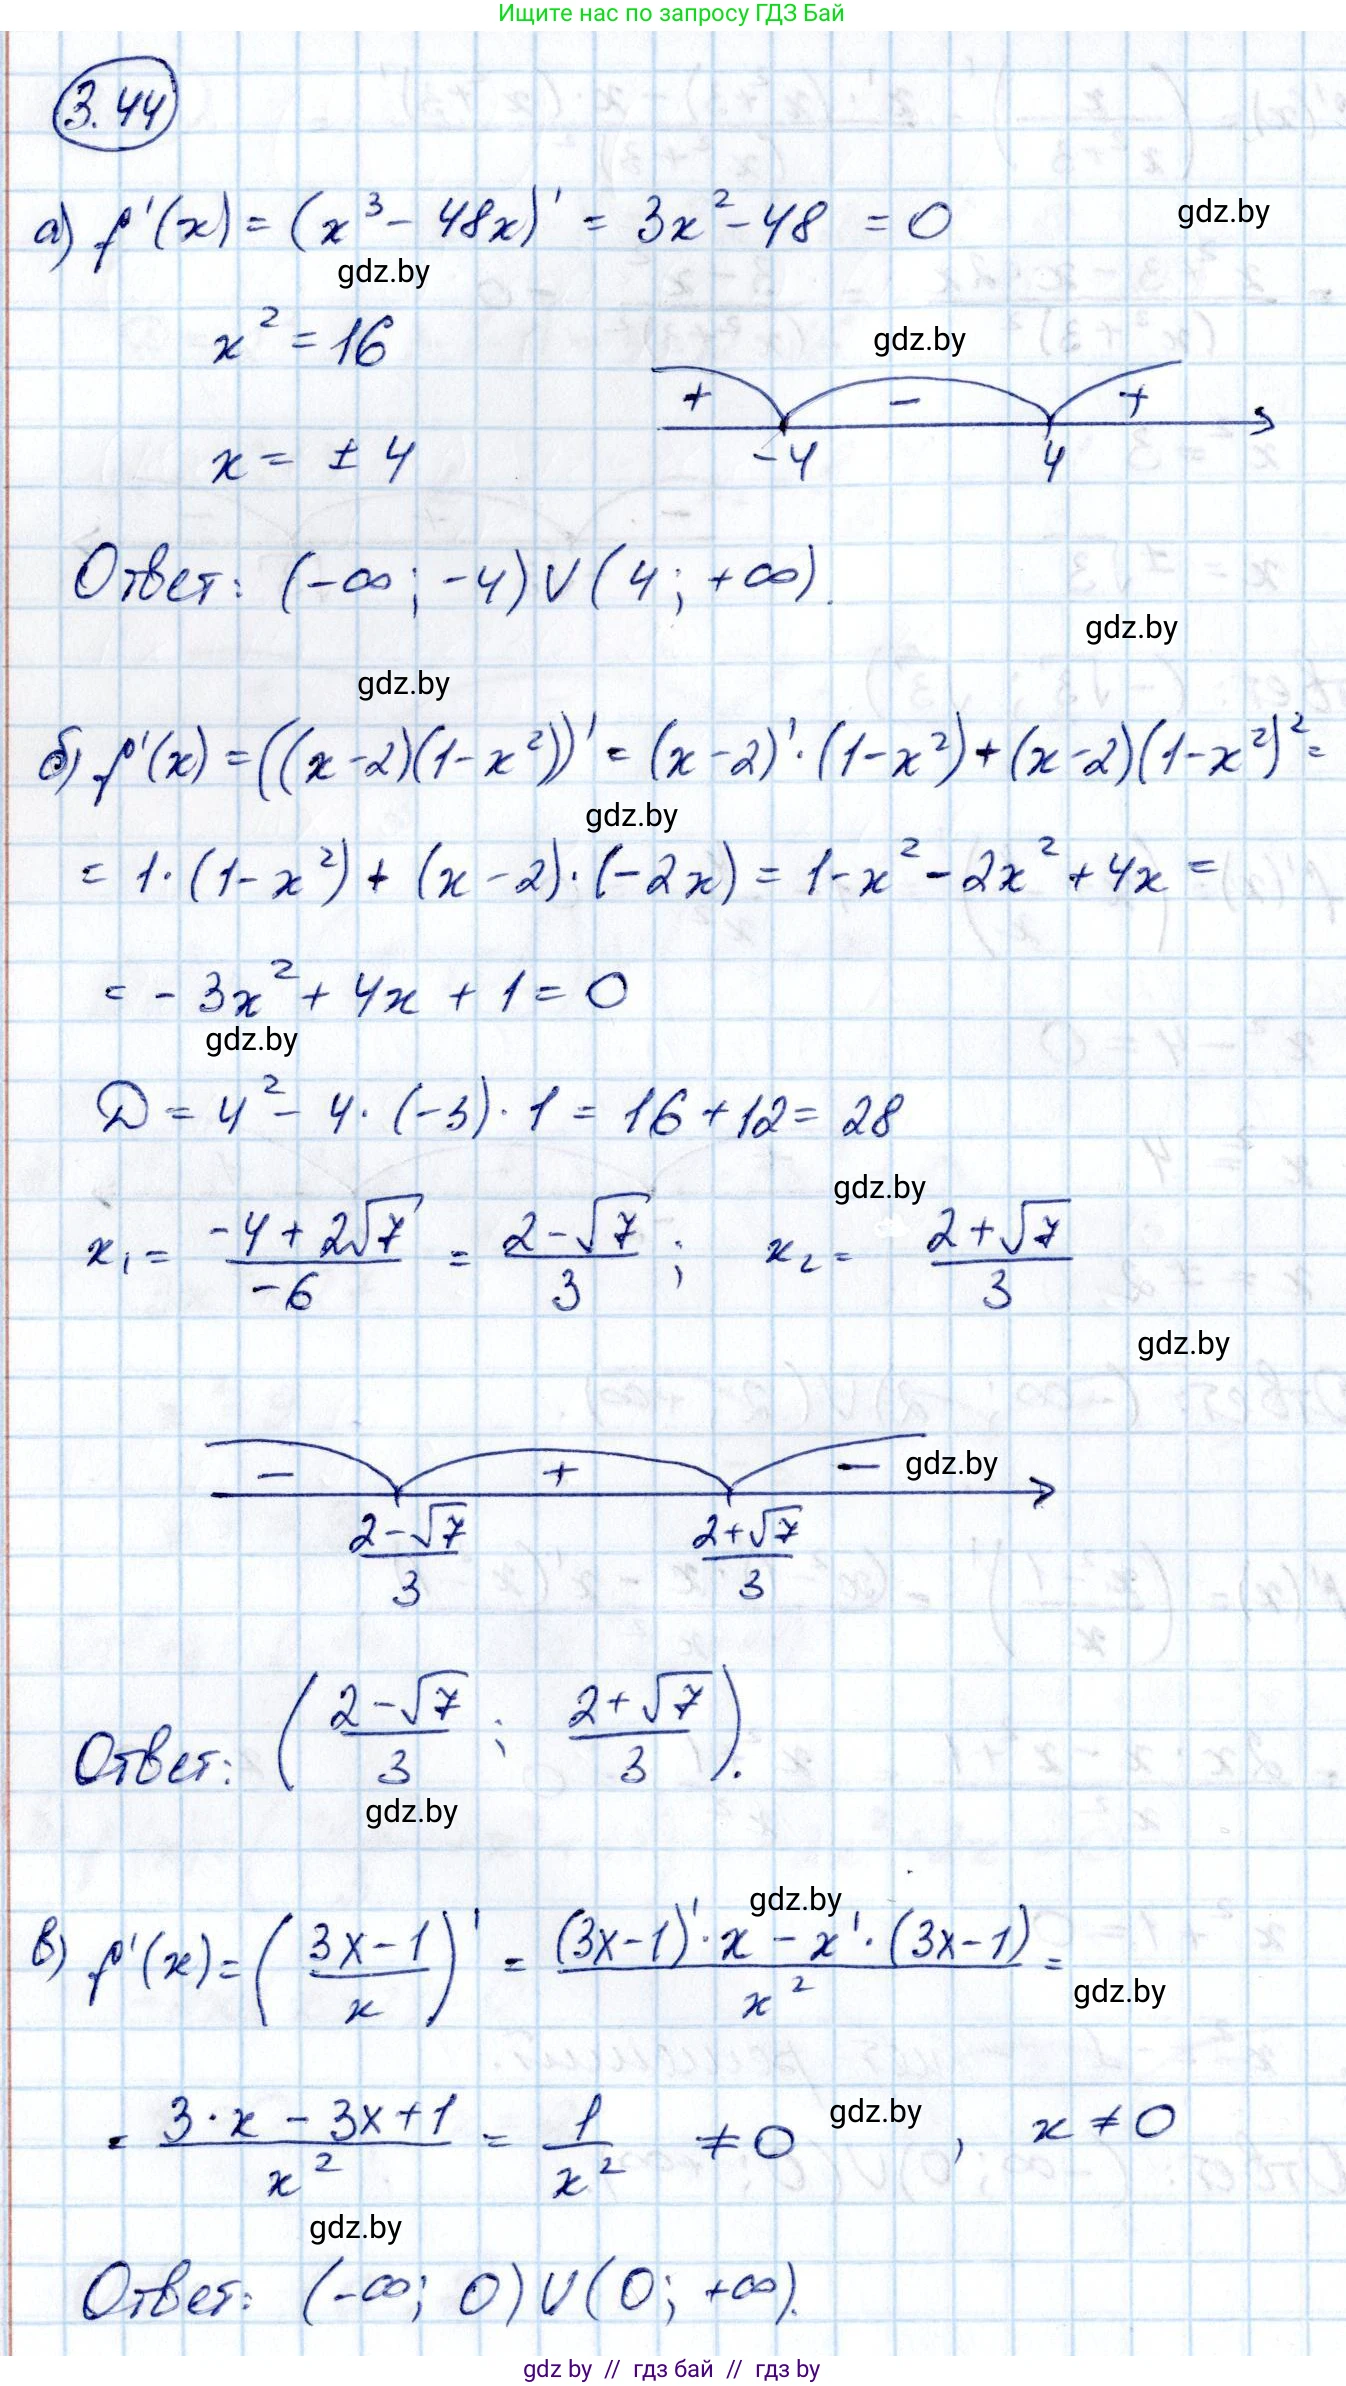 Ищите нас по запросу ГДЗ Бай
3.44
а) f'(x) = (x³ - 48x)' = 3x² - 48 = 0
gdz.by
gdz.by
x² = 16
gdz.by
+ - +
x = ± 4
-4 4
Ответ: (-∞; -4) ∪ (4; +∞).
gdz.by
gdz.by
б) f'(x) = ((x-2)(1-x²))' = (x-2)'·(1-x²) + (x-2)(1-x²)² =
gdz.by
= 1·(1-x²) + (x-2)·(-2x) = 1-x²-2x²+4x =
= -3x² + 4x + 1 = 0
gdz.by
D = 4² - 4·(-3)·1 = 16 + 12 = 28
gdz.by
x₁ = (-4+2√7)/(-6) = (2-√7)/3 ; x₂ = (2+√7)/3
gdz.by
- + -
gdz.by
(2-√7)/3 (2+√7)/3
Ответ: ((2-√7)/3 ; (2+√7)/3).
gdz.by
gdz.by
в) f'(x) = ((3x-1)/x)' = ((3x-1)'·x - x'·(3x-1))/x² =
gdz.by
= (3·x - 3x + 1)/x² = 1/x² ≠ 0 , x ≠ 0
gdz.by
gdz.by
Ответ: (-∞; 0) ∪ (0; +∞).
gdz by // гдз бай // гдз by